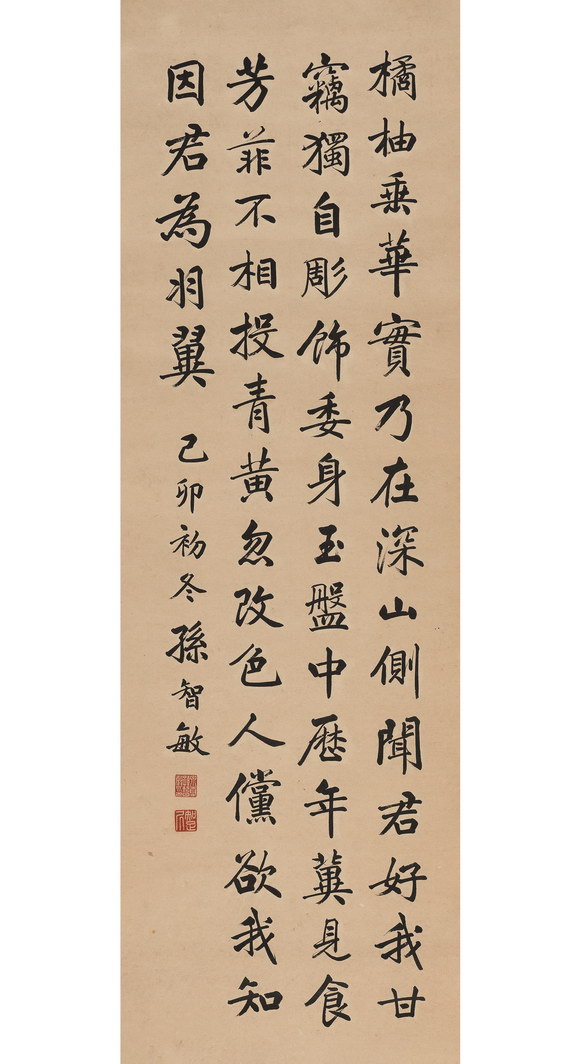 橘柚垂華實乃在深山側聞君好我甘
竊獨自彫飾委身玉盤中歷年冀見食
芳菲不相投青黃忽改色人儻欲我知
因君為羽翼 己卯初冬孫智敏